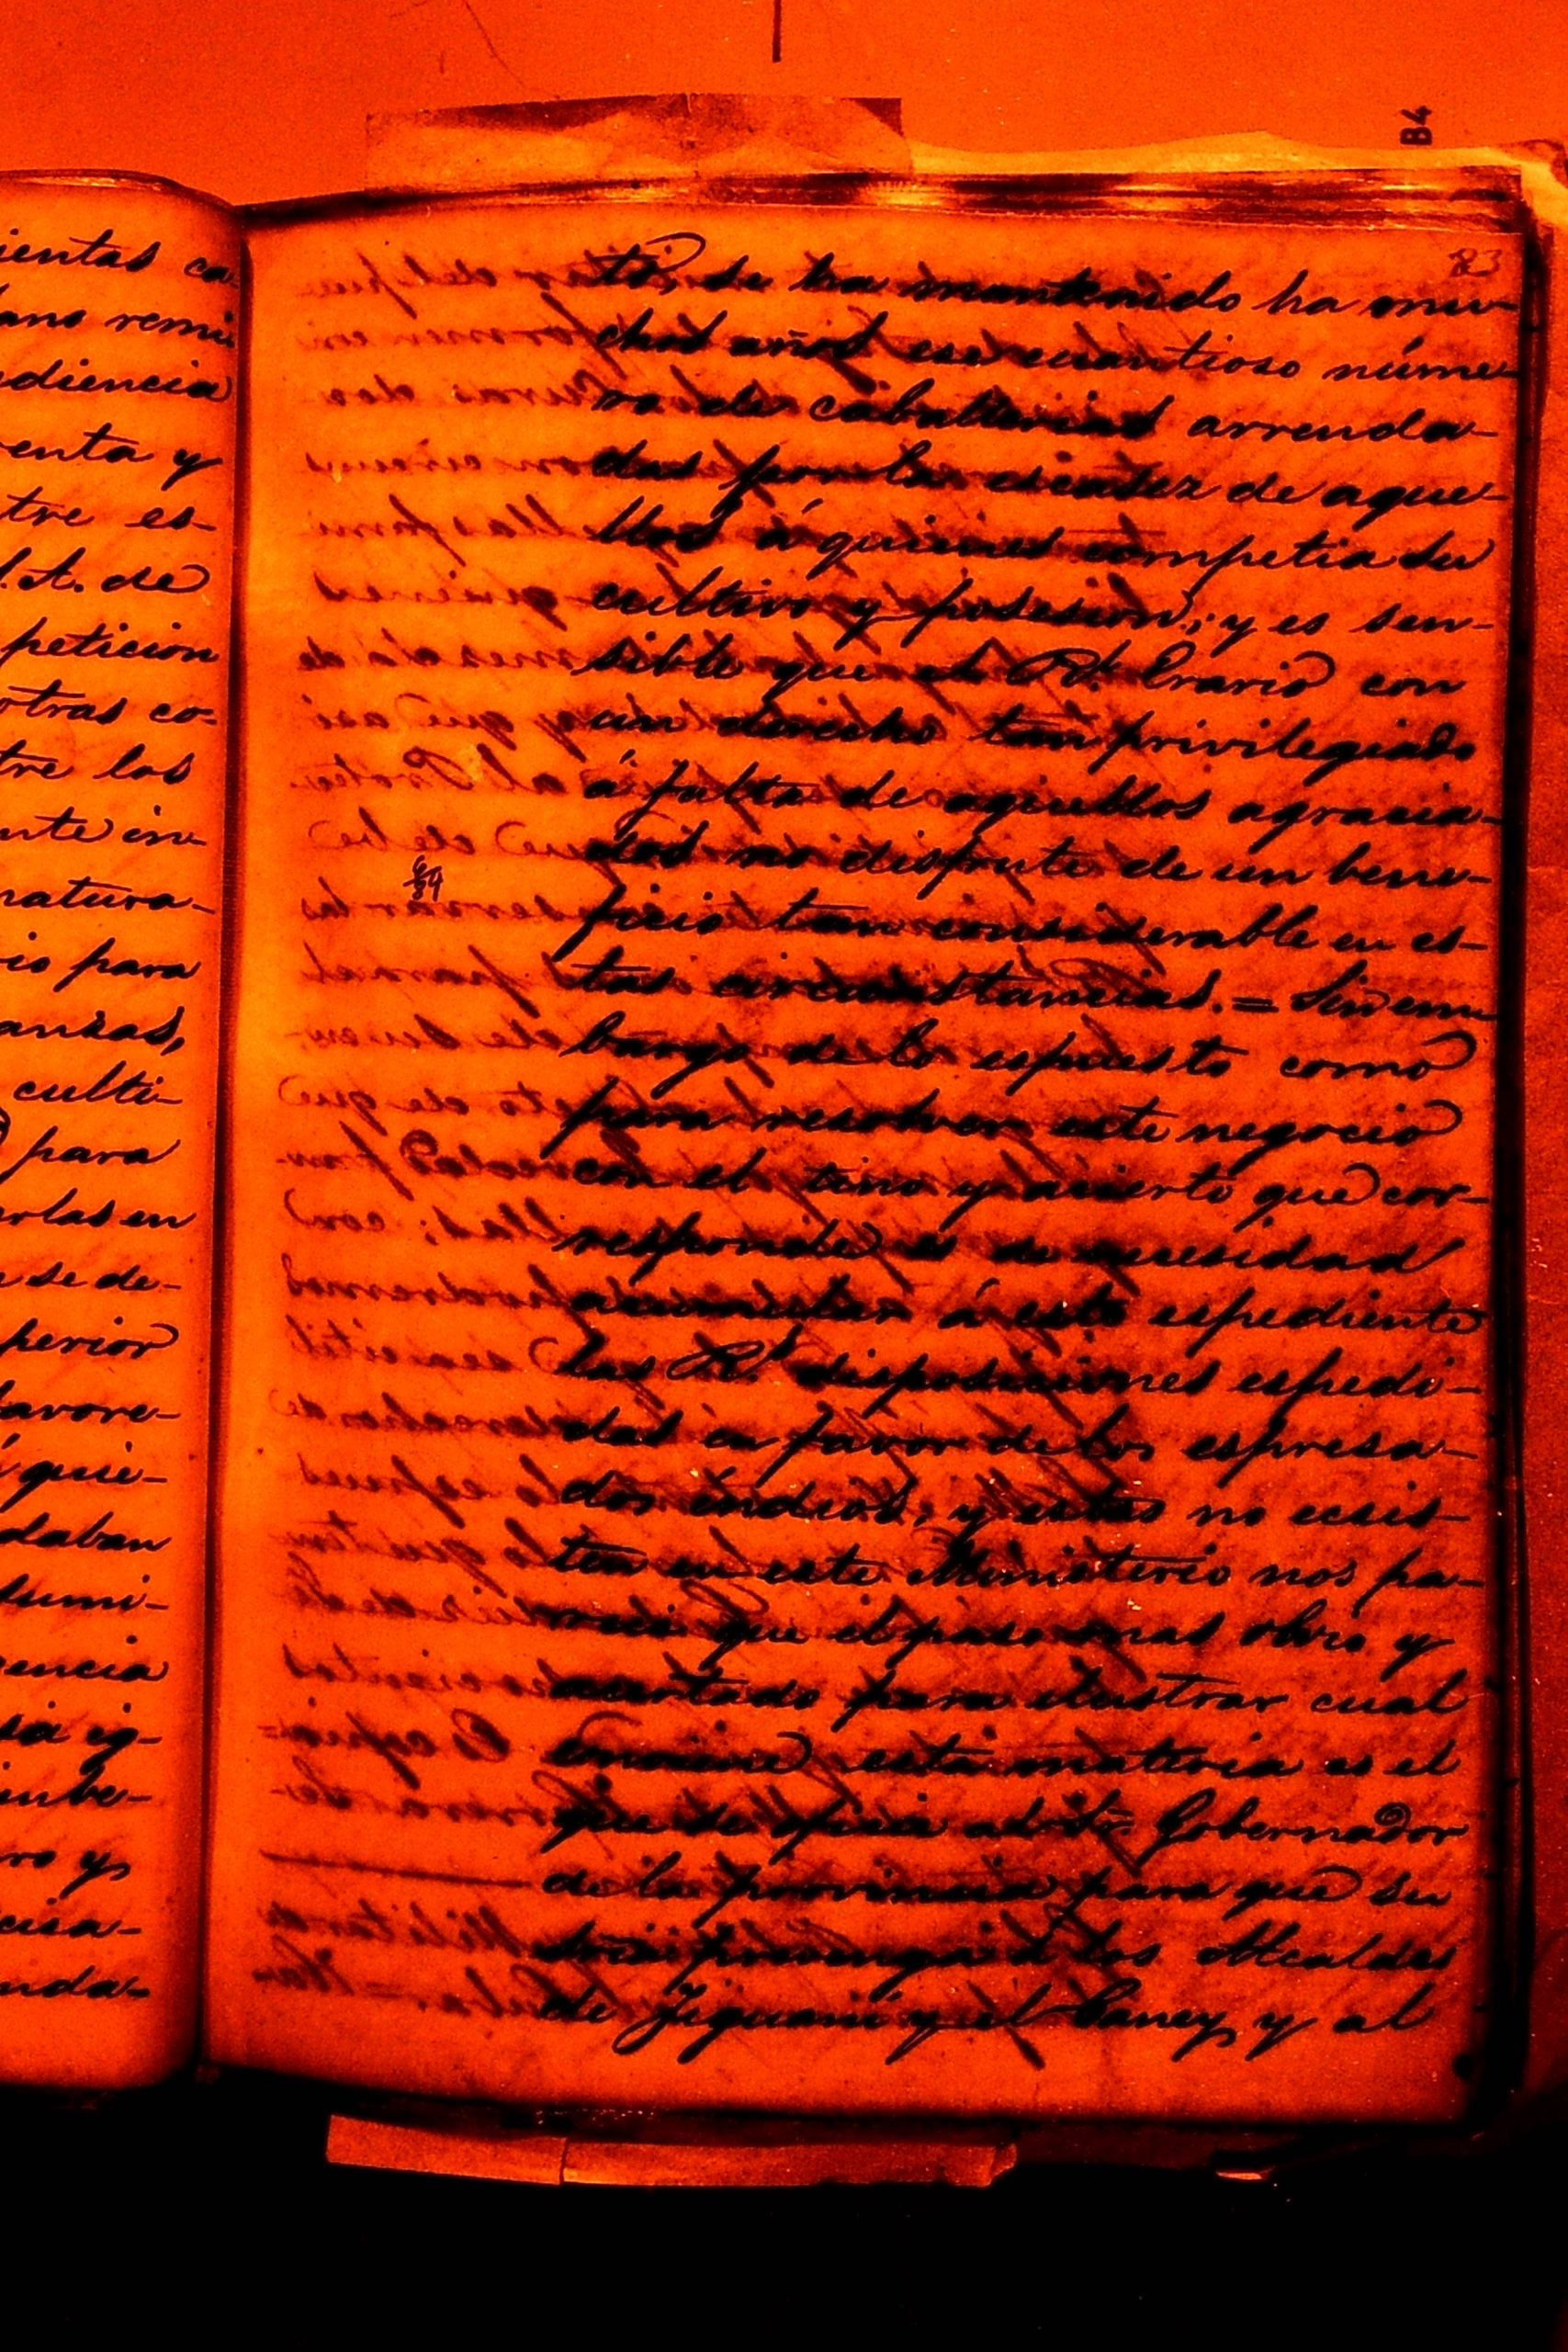 ientas ca-
ano remi
diencia
venta y
tre es-
l. A. de
peticion
otras co-
tre los
nte in-
natura-
io para
anzas,
culti-
para
erlas en
se de-
perior
favore-
á quie-
daban
sumi-
gencia
sia ig-
ro y
cisa-
nda-
B4
83
to, se ha mantenido ha mu-
chos años ese cuantioso núme-
ro de caballerias arrenda-
das por la escasez de aque-
llos á quienes competia su
cultivo y posesion; y es sen-
sible que el Rl. Erario con
un derecho tan privilegiado
á falta de aquellos agracia-
dos no disfrute de un bene-
ficio tan considerable en es-
tas circunstancias. = Sin em-
bargo de lo espuesto como
para resolver este negocio
con el tino y acierto que cor-
responde es de necesidad
acumular á este espediente
las Rs. disposiciones espedi-
das en favor de los espresa-
dos indios, y estas no ecsis-
ten en este Ministerio nos pa-
rece que el paso mas obvio y
acertado para ilustrar cual
conviene esta materia es el
que se oficie al Sr. Gobernador
de la provincia para que su
sria prevenga á los Alcaldes
de Jiguaní y el Caney, y al